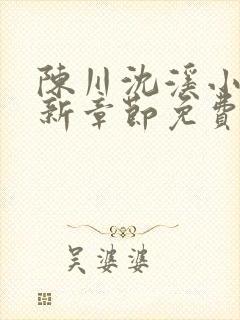 陳川沈溪小
新章節免費
吳婆婆